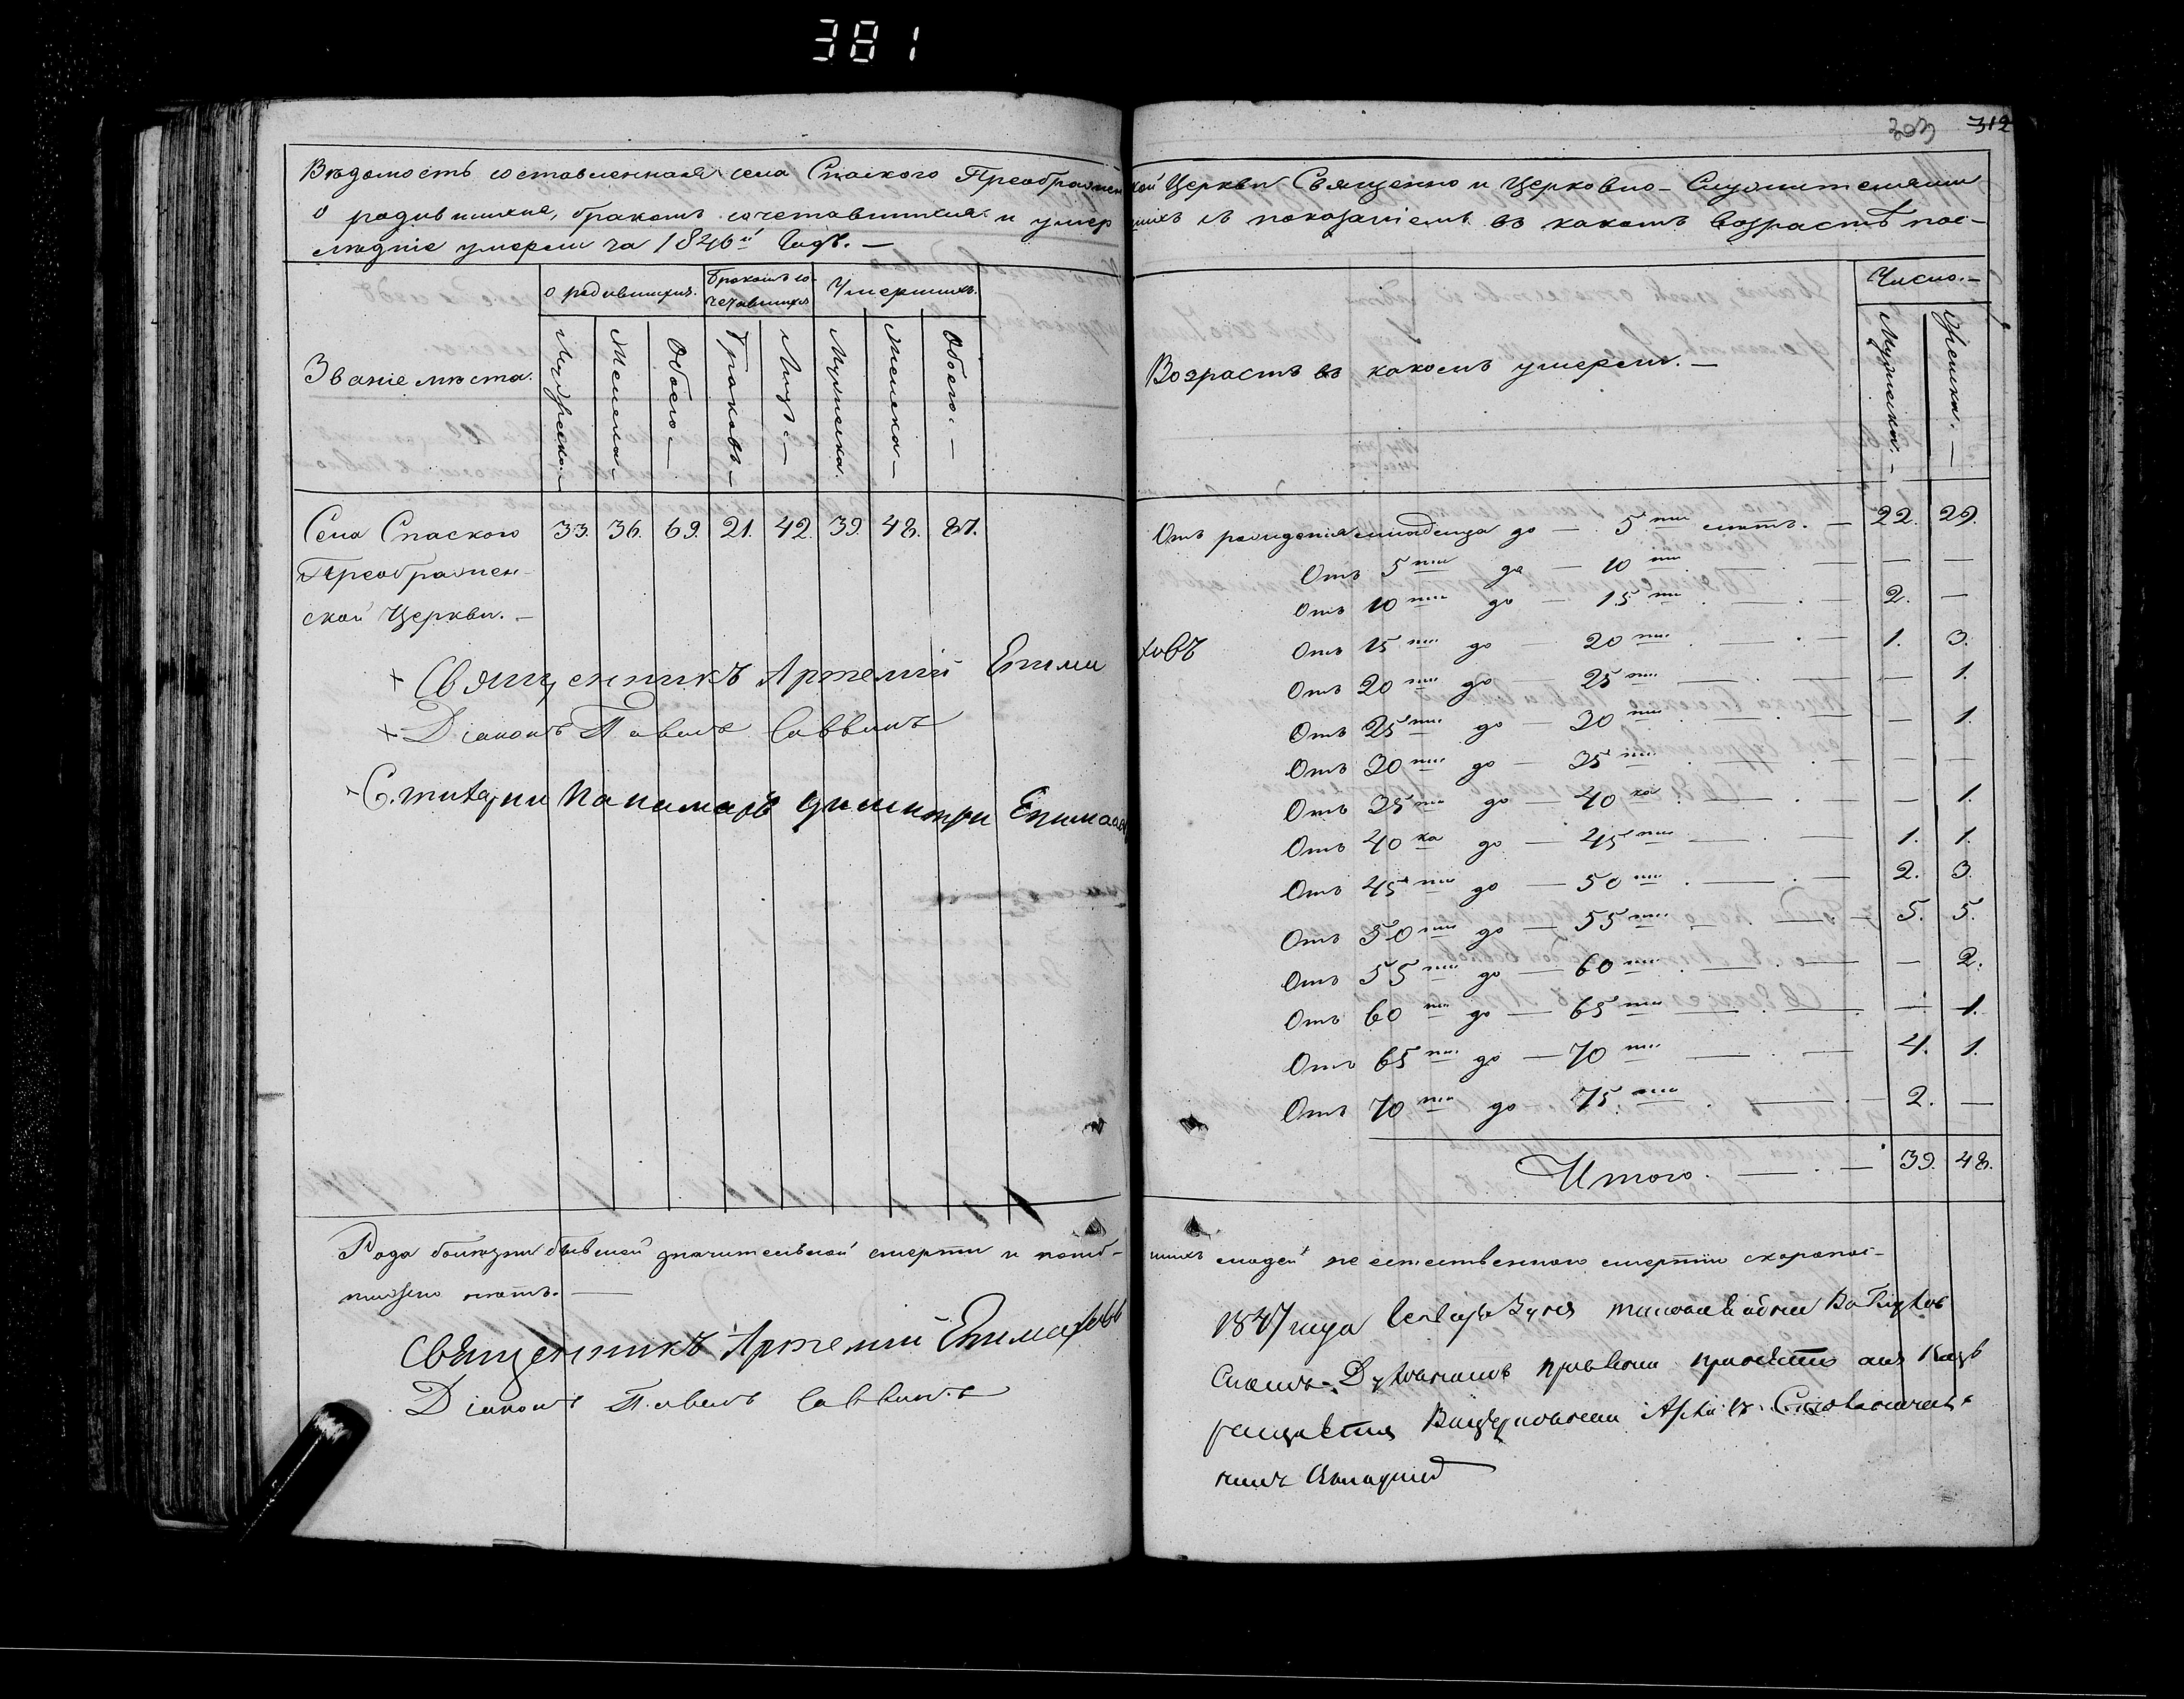 381
303 312
Вѣдомость составленная села Спаского Преображенской Церкви Священно и Церковно-Служителями
о родившихся, бракомъ сочетавшихся и умершихъ съ показаніемъ въ какомъ возрастѣ пос-
лѣдніе умерли за 1846й Годъ. —
Званіе мѣста.
о родившихся.
Бракомъ со-
четавшихся
Умершихъ.
Мужеска —
Женска —
Обоего —
Браковъ —
Лицъ —
Мужеска.
Женска —
Обоего. —
Села Спаского 33. 36. 69. 21. 42. 39. 48. 87.
Преображен-
ской Церкви. —
Священникъ Артемій Епимаховъ
Діаконъ Павелъ Саввинъ
Пономарь Димитри
Возрастъ въ какомъ умерли. —
Число. —
Мужеска. —
Женска. —
Отъ рожденія младенца до — 5ти лѣтъ. — 22. 29.
Отъ 5ти до — 10ти — — —
Отъ 10ти до — 15ти — 2. —
Отъ 15ти до — 20ти — 1. 3.
Отъ 20ти до — 25ти — — 1.
Отъ 25ти до — 30ти — — 1.
Отъ 30ти до — 35ти — — —
Отъ 35ти до — 40ка — — 1.
Отъ 40ка до — 45ти — 1. 1.
Отъ 45ти до — 50ти — 2. 3.
Отъ 50ти до — 55ти — 5. 5.
Отъ 55ти до — 60ти — — 2.
Отъ 60ти до — 65ти — — 1.
Отъ 65ти до — 70ти — 4. 1.
Отъ 70ти до — 75ти — 2. —
Итого. — 39. 48.
Рода болѣзни бывшей значительной смерти и погиб-шихъ людей не естественною смертію скоропос-
тижно нѣтъ. —
Священникъ Артемій Епимаховъ
Діаконъ Павелъ Саввинъ
1847 года